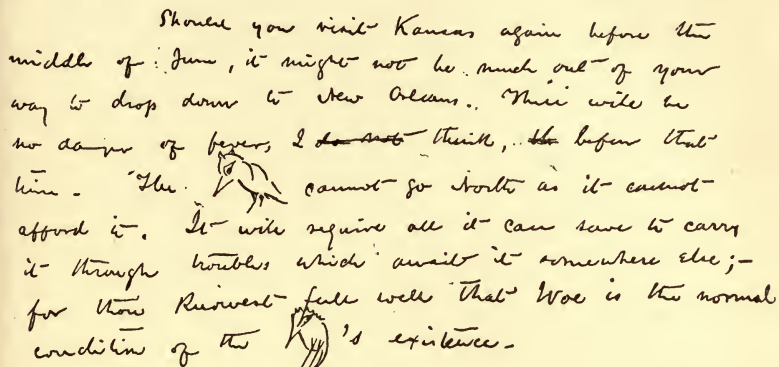 Should you visit Kansas again before the
middle of June, it might not be much out of your
way to drop down to New Orleans. There will be
no danger of fever, I do not think, th before that
time. The cannot go North as it cannot
afford it. It will require all it can save to carry
it through troubles which await it somewhere else;-
for thou knowest full well that Woe is the normal
condition of the 's existence-